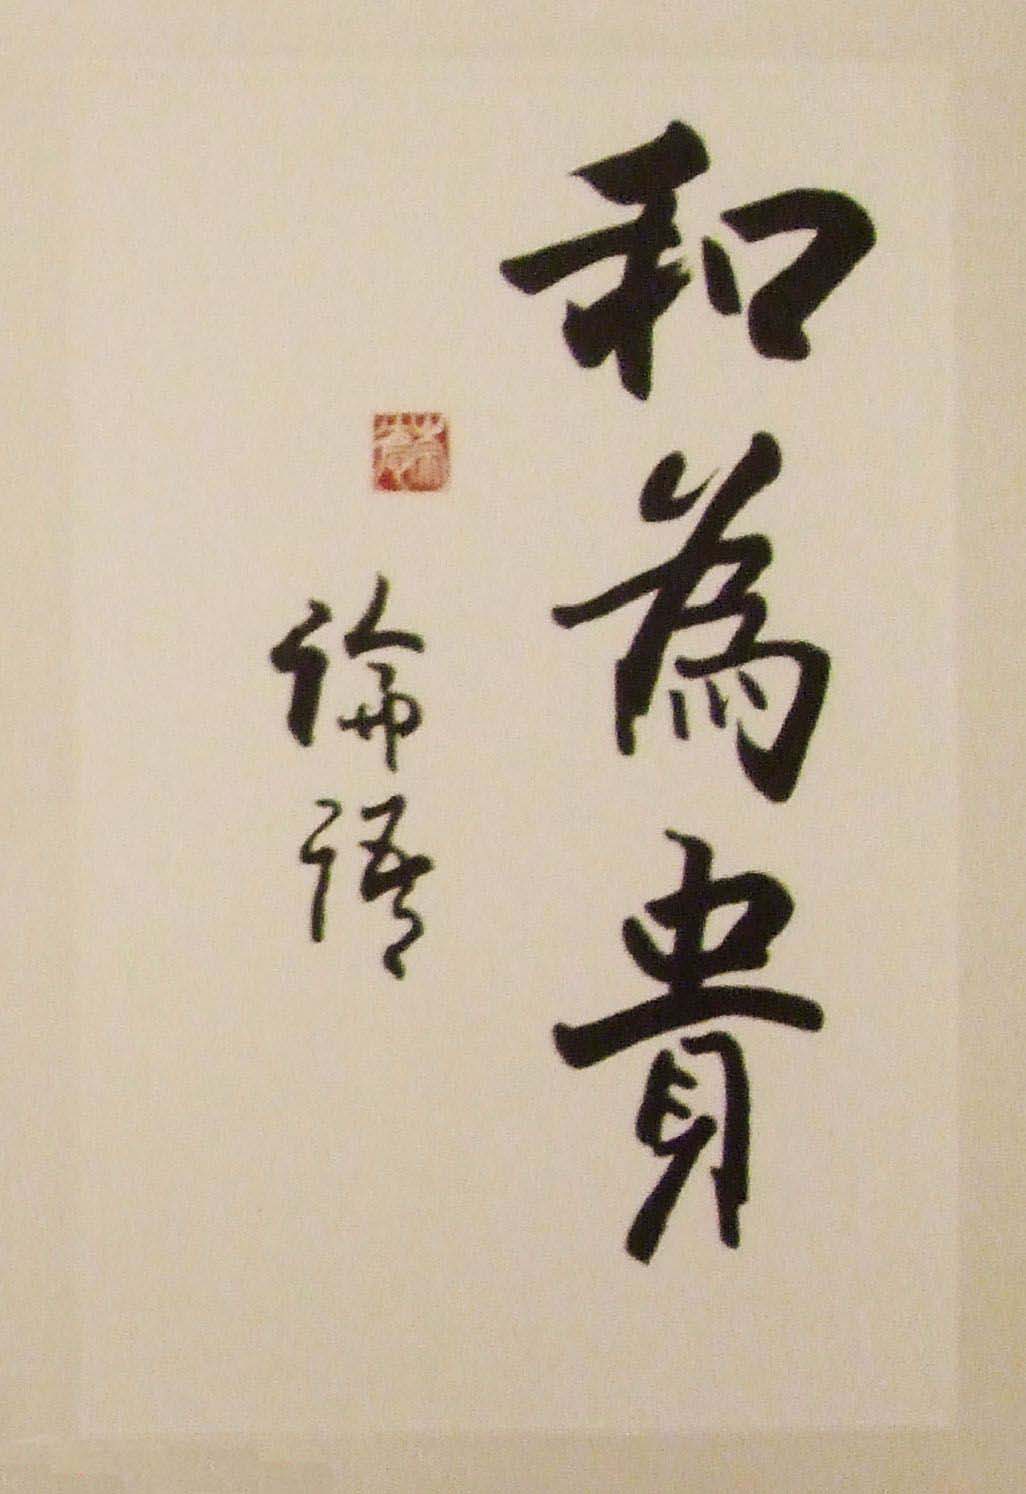 和為貴
論語